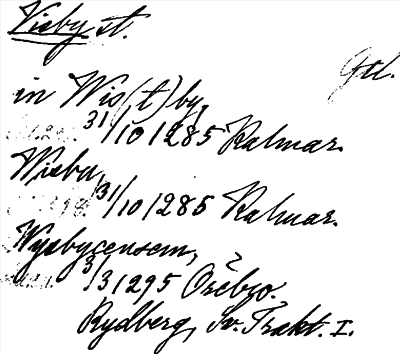 Visby st.
Gtl.
in Wis(t)by,
31/10 1285 Kalmar.
Wisby,
31/10 1285 Kalmar.
Wysbycensem,
3/3 1295 Örebro.
Rydberg, Sv. Trakt. I.